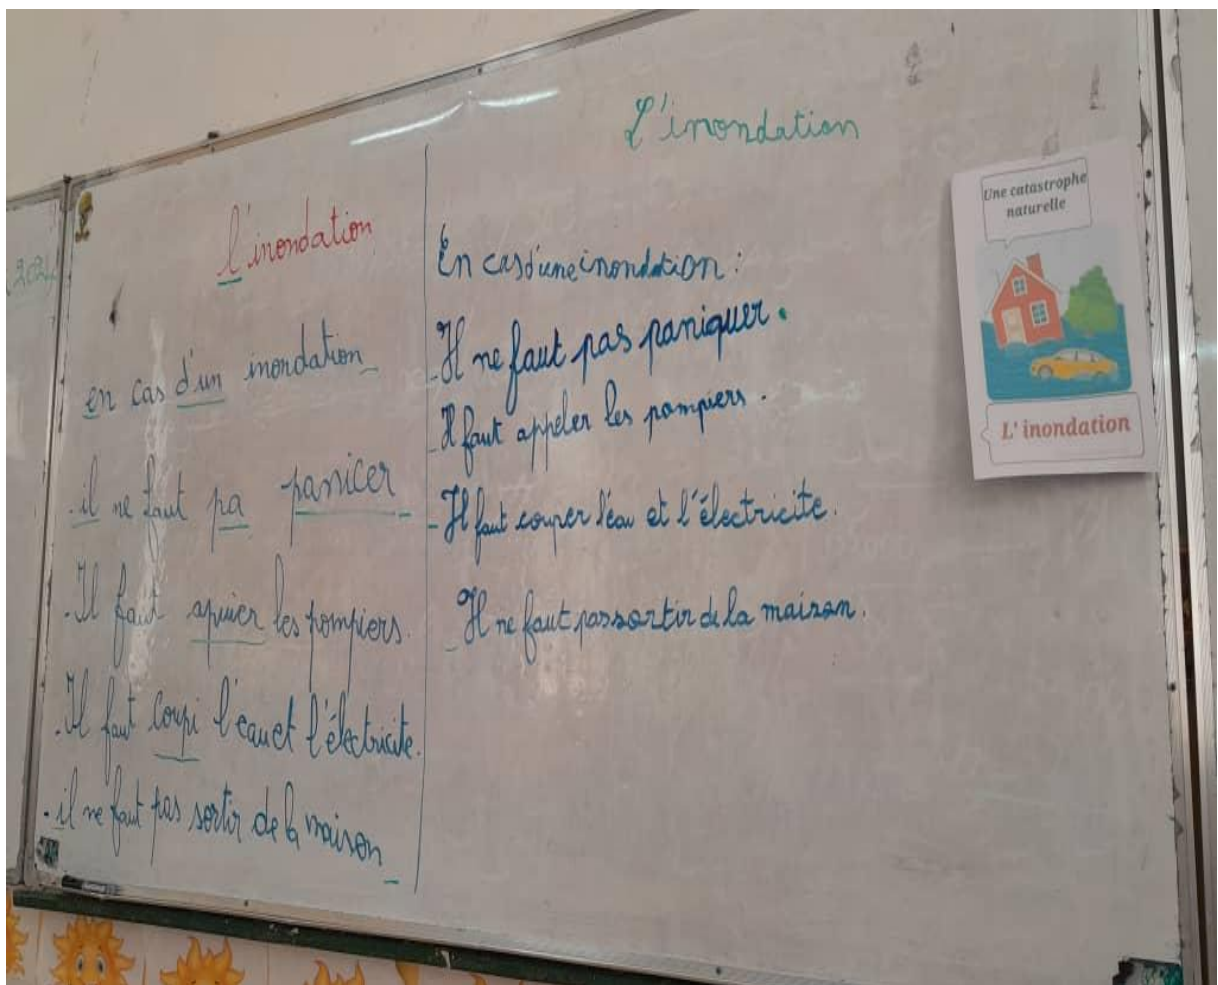 L'inondation
l'inondation
en cas d'un inondation
. il ne faut pa panicer
. Il faut apuier les pompiers.
. Il faut coupi l'eau et l'électricite.
. il ne faut pas sortir de la maison
En cas d'une inondation :
- Il ne faut pas paniquer.
- Il faut appeler les pompiers.
- Il faut couper l'éau et l'électricite.
- Il ne faut pas sortir de la maison.
Une catastrophe
naturelle
L' inondation